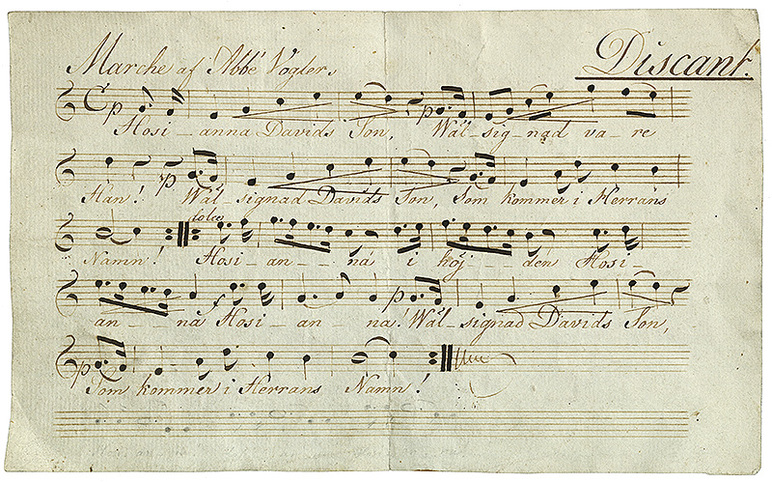 Marche af Abbé Vogler.
Discant.
C p p
Hosi_anna Davids Son, Wäl_sig_nad va_re
p
Han! Wäl_signad Davids Son, Som kommer i Herrans
dolce
Namn! Hosi_an__na i höj__den Hosi_
f p
an__na Hosi_an_na! Wäl_signad Davids Son,
p
Som kommer i Herrans Namn!